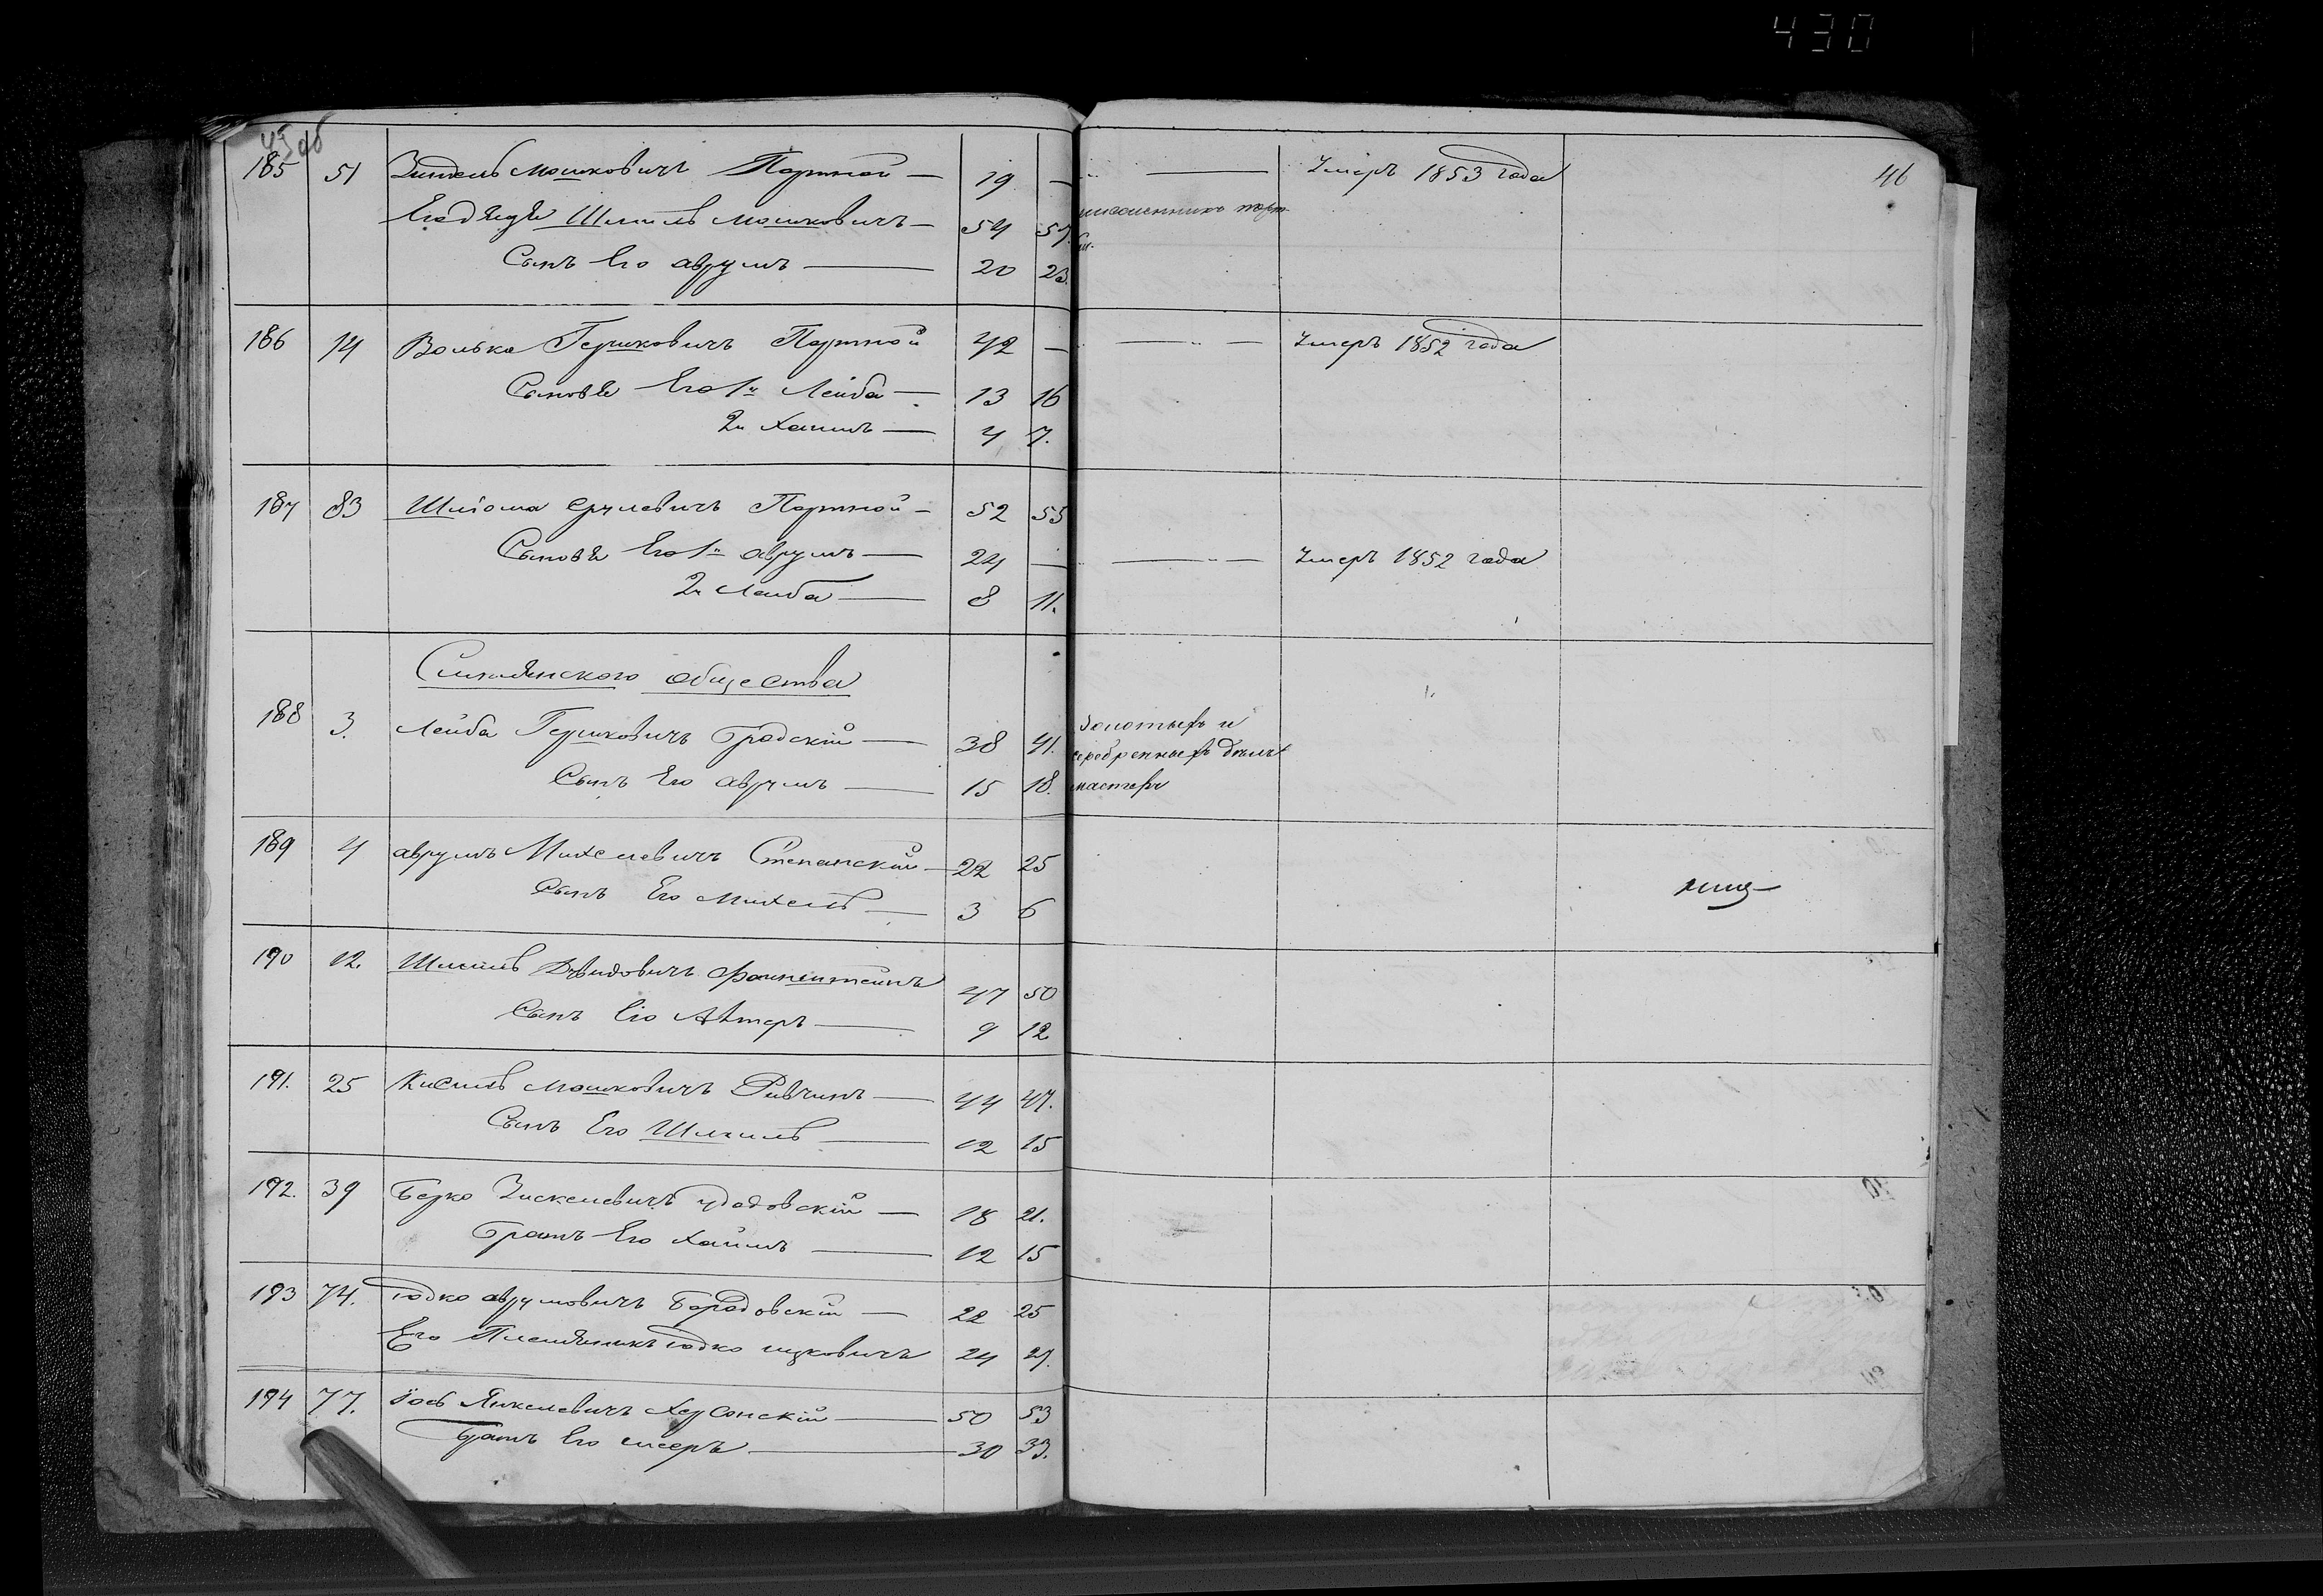 430
45 об
46
185 51 Зиндель Мошковичъ Портной — 19 — — Умеръ 1853 года
Его дядя Шмиль Мошковичъ — 54 57.
Сынъ Его Аврумъ — 20 23.
186 14 Волько Гершковичъ Портной 42 — — Умеръ 1852 года
Сыновья Его 1й Лейба — 13 16
2й Хаимъ — 4 7.
187 83 Шлiома Срулевичъ Портной — 52 55
Сыновья Его 1й Аврумъ — 24 — — Умеръ 1852 года
2й Лейба — 8 11.
Смилянского общества
188 3. Лейба Гершковичъ Градскiй — 38 41. Золотыхъ и
серебренныхъ делъ
Сынъ Его Аврумъ — 15 18. мастеръ
189 4 Аврумъ Михелевичъ Степанскiй — 22 25
Сынъ Его Михель — 3 6
190 12. Шмиль Давидовичъ Файнштейнъ 47 50
Сынъ Его Алтеръ — 9 12
191. 25 Кисиль Мошковичъ Ривчинъ — 44 47.
Сынъ Его Шмиль — 12 15
192. 39 Берко Зискелевичъ — 18 21.
Братъ Его Хаимъ — 12 15
193 74. Iодко Аврумовичъ Бородовскiй — 22 25
Его Племянникъ Iодко Ицковичъ 24 27.
194 77. Iосъ Янкелевичъ Херсонскiй — 50 53
Братъ Его Мееръ — 30 33.